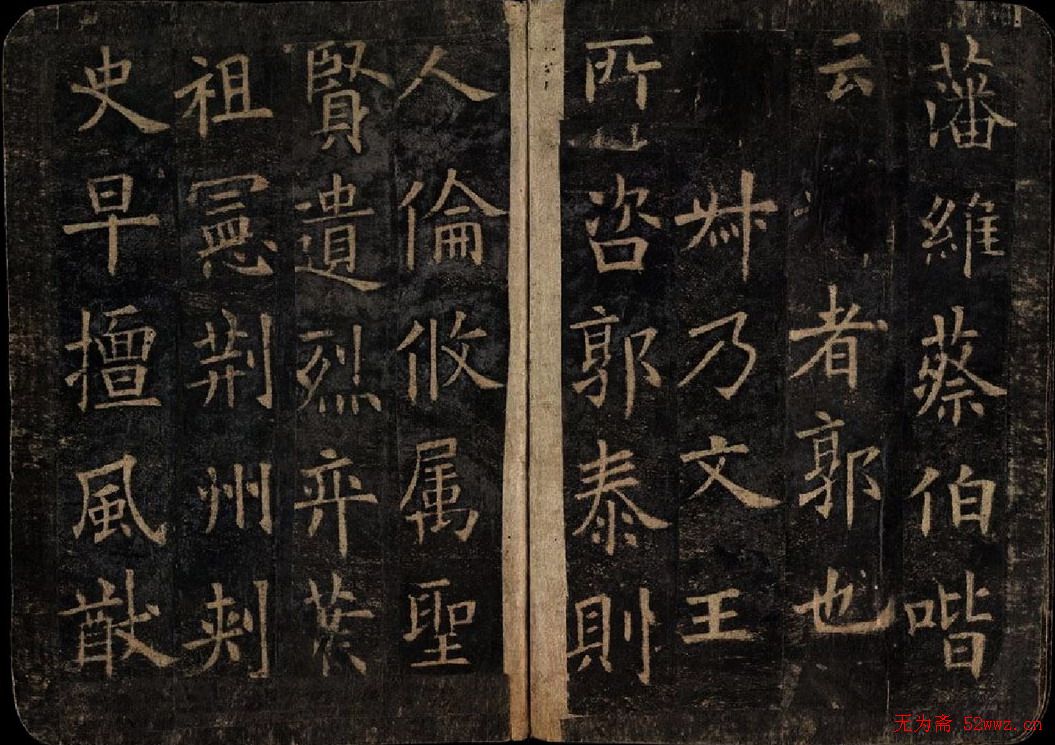 藩維蔡伯喈
云者郭也
叔乃文王
所咨郭泰則
人倫攸属聖
賢遺烈弈葉
祖憲荊州刺
史早擅風猷
无为斋 52wwz.cn